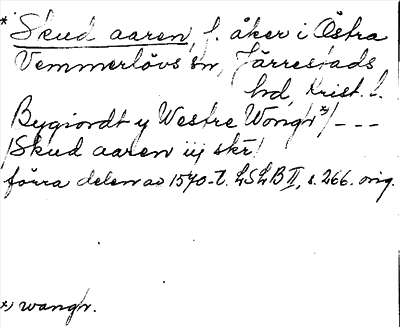 * Skud aaren, f. åker i Östra
Vemmerlövs sn, Järrestads
hd, Krist. l.
Bygiordt y Westre Wongr *) / - - -
/ Skud aaren iij skr /
förra delen av 1570-t. LSLB II, s. 266. orig.
*) wangr.